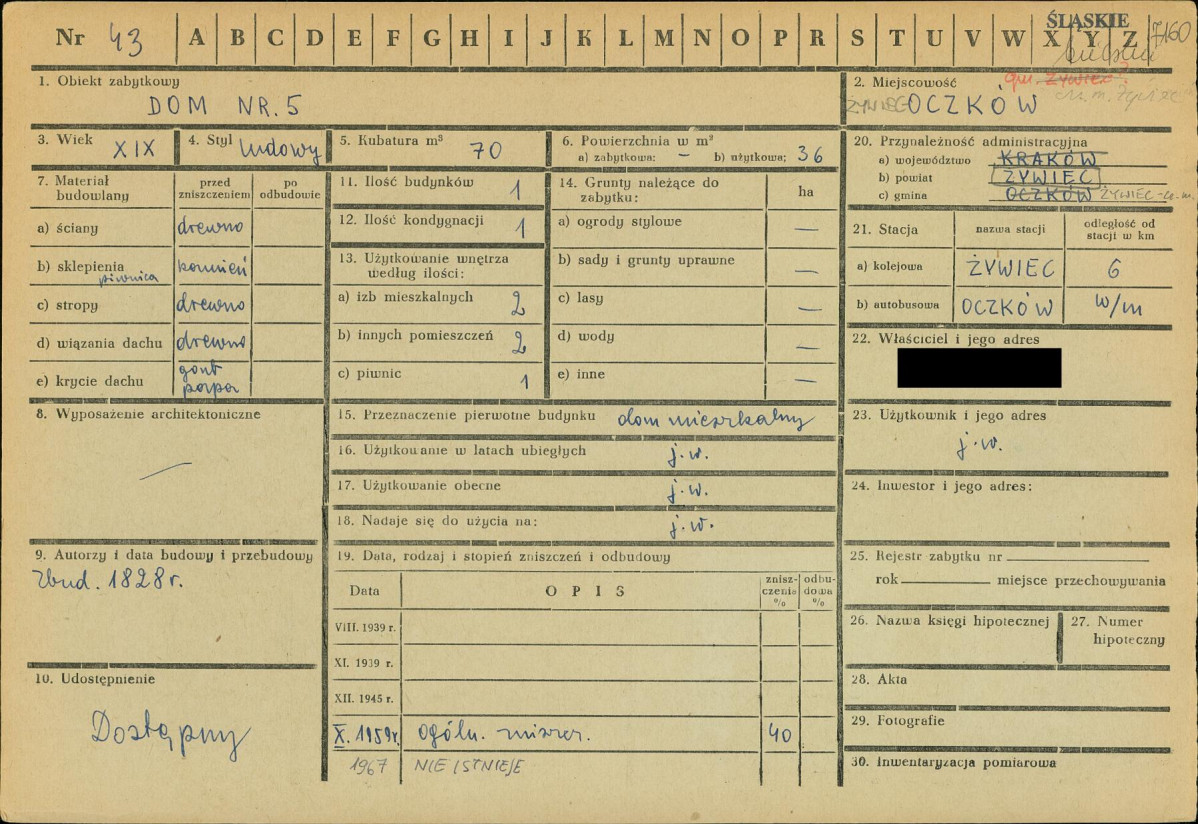 Nr 43 A B C D E F G H I J K L M N O P R S T U V W X Y Z
ŚLĄSKIE
7160
1. Obiekt zabytkowy
DOM NR. 5
2. Miejscowość
gm. ŻYWIEC?
OCZKÓW
3. Wiek XIX
4. Styl ludowy
5. Kubatura m³ 70
6. Powierzchnia w m²
a) zabytkowa; — b) użytkowa; 36
7. Materiał budowlany
przed zniszczeniem
po odbudowie
a) ściany drewno
b) sklepienia kamień
piwnica
c) stropy drewno
d) wiązania dachu drewno
e) krycie dachu gont papa
8. Wyposażenie architektoniczne
—
9. Autorzy i data budowy i przebudowy
Zbud. 1828 r.
10. Udostępnienie
Dostępny
11. Ilość budynków 1
12. Ilość kondygnacji 1
13. Użytkowanie wnętrza według ilości:
a) izb mieszkalnych 2
b) innych pomieszczeń 2
c) piwnic 1
14. Grunty należące do zabytku:
ha
a) ogrody stylowe —
b) sady i grunty uprawne —
c) lasy —
d) wody —
e) inne —
15. Przeznaczenie pierwotne budynku dom mieszkalny
16. Użytkowanie w latach ubiegłych j.w.
17. Użytkowanie obecne j.w.
18. Nadaje się do użycia na: j.w.
19. Data, rodzaj i stopień zniszczeń i odbudowy
Data
OPIS
znisz-
czenia
%
odbu-
dowa
%
VIII. 1939 r.
XI. 1939 r.
XII. 1945 r.
X. 1959 r. ogóln. niszcz. 40
1967 NIE ISTNIEJE
20. Przynależność administracyjna
a) województwo KRAKÓW
b) powiat ŻYWIEC
c) gmina OCZKÓW ŻYWIEC
21. Stacja
nazwa stacji
odległość od stacji w km
a) kolejowa ŻYWIEC 6
b) autobusowa OCZKÓW w/m
22. Właściciel i jego adres
23. Użytkownik i jego adres
j.w.
24. Inwestor i jego adres:
25. Rejestr zabytku nr
rok miejsce przechowywania
26. Nazwa księgi hipotecznej
27. Numer hipoteczny
28. Akta
29. Fotografie
30. Inwentaryzacja pomiarowa